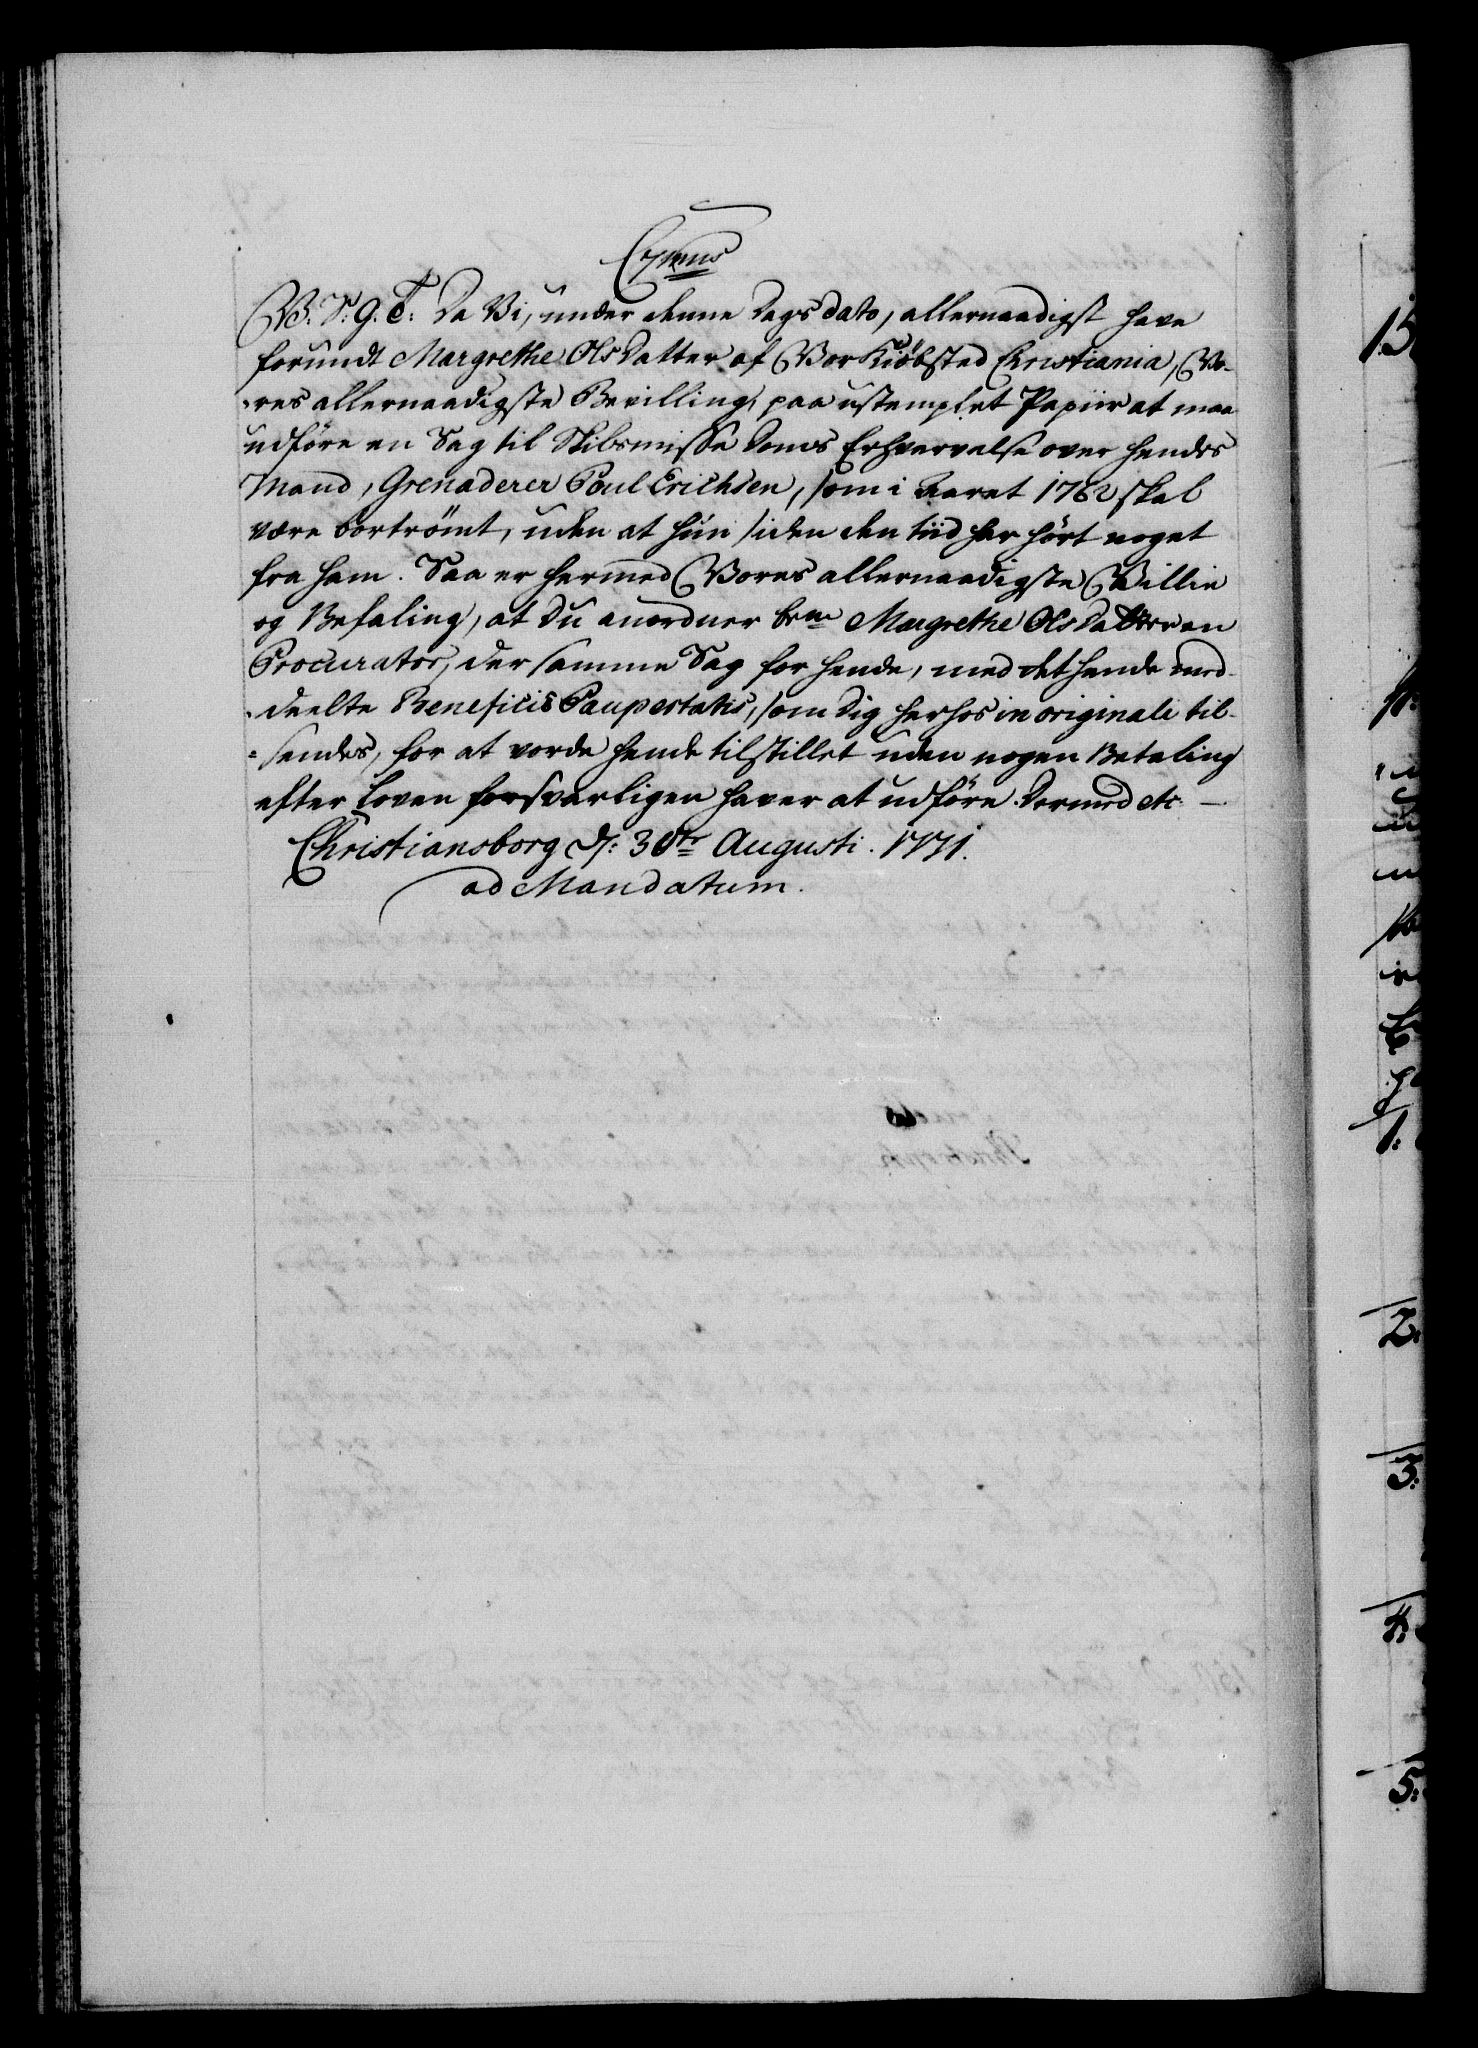 V: S: G: T: Da Vi, under denne Dags dato, allernaadigst have
forundt Margrethe OlsDatter af Vor Kiöbsted Christiania, Vo-
-res allernaadigste Bevilling, paa ustemplet Papiir at maa
udföre en Sag til Skibsmisse Doms Erhvervelse over hendes
Mand, Grenaderer Poul Erichsen, som i Aaret 1762 skal
være bortrömt, uden at hun siden den tiid har hört noget
fra ham. Saa er hermed Vores allernaadigste Villie
og Befaling, at du anordner bem. Margrethe OlsDatter en
Procurator, der samme Sag for hende, med det hende med-
-deelte Beneficio Paupertatis, som dig herhos in originali til-
=sendes, for at vorde hende tilstillet uden nogen Betaling
efter Loven forsvarligen haver at udföre. Dermed etc
Christiansborg d: 30te Augusti. 1771.
ad Mandatum.
15
1:
2.
3:
4:
5: